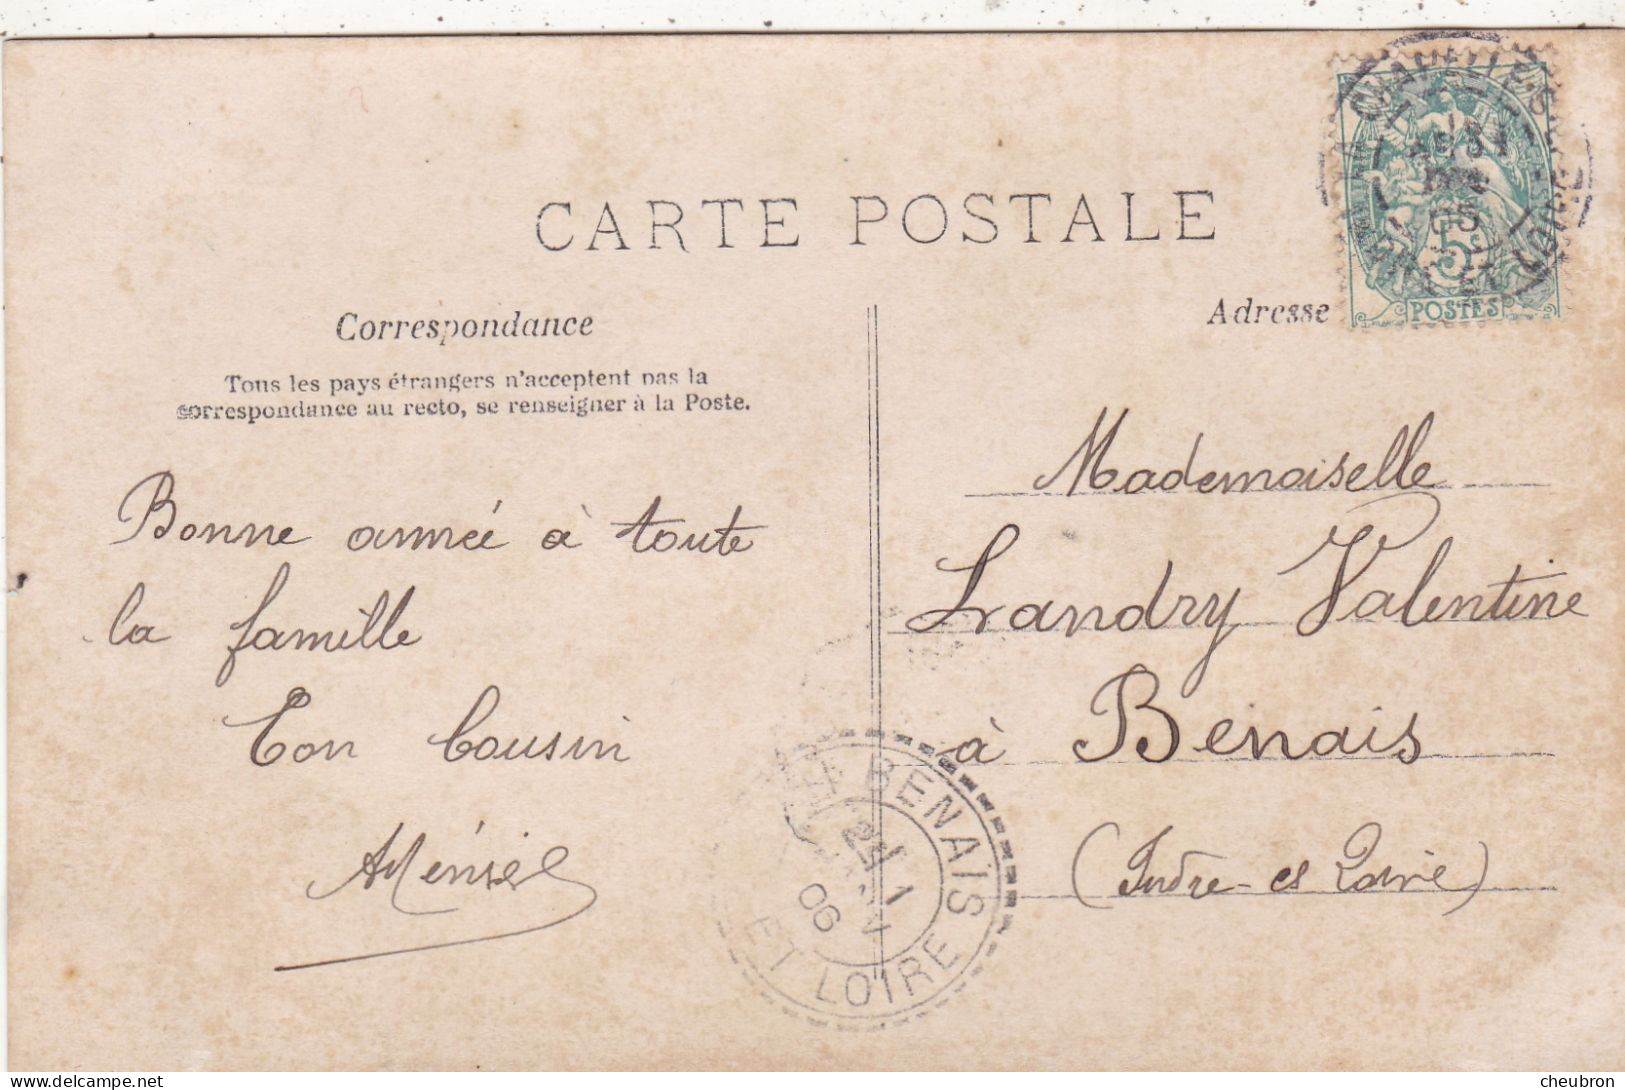 CARTE POSTALE
Correspondance
Tous les pays étrangers n'acceptent pas la
correspondance au recto, se renseigner à la Poste.
Bonne année à toute
la famille
Ton Cousin
Adresse
5
POSTES
31
05
LOIRE
Mademoiselle
Landry Valentine
à Benais
(Indre-et Loire)
BENAIS
1
06
ET LOIRE
cheubron
www.delcampe.net